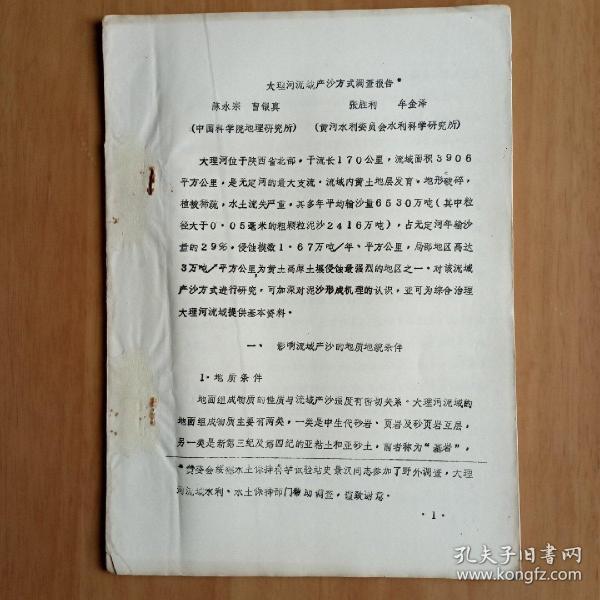 大理河流域产沙方式调查报告*
陈永宗 曹银真 张胜利 牟金泽
(中国科学院地理研究所) (黄河水利委员会水利科学研究所)
大理河位于陕西省北部。干流长170公里，流域面积3906
平方公里，是无定河的最大支流。流域内黄土地层发育，地形破碎，
植被稀疏，水土流失严重，其多年平均输沙量6530万吨(其中粒
径大于0·05毫米的粗颗粒泥沙2416万吨)，占无定河年输沙
量的29%，侵蚀模数1·67万吨/年、平方公里，局部地区高达
3万吨/平方公里，为黄土高原土壤侵蚀最强烈的地区之一。对该流域
产沙方式进行研究，可加深对泥沙形成机理的认识，亚可为综合治理
大理河流域提供基本资料。
一、 影响流域产沙的地质地貌条件
1·地质条件
地面组成物质的性质与流域产沙强度有密切关系。大理河流域的
地面组成物质主要有两类，一类是中生代砂岩、页岩及砂页岩互层，
另一类是新第三纪及第四纪的亚粘土和亚砂土，前者称为“基岩，
*黄委会绥德水土保持科学试验站史景汉同志参加了野外调查，大理
河流域水利、水土保持部门帮助调查，谨致谢意。
·1·
孔夫子旧书网
www.kongfz.com